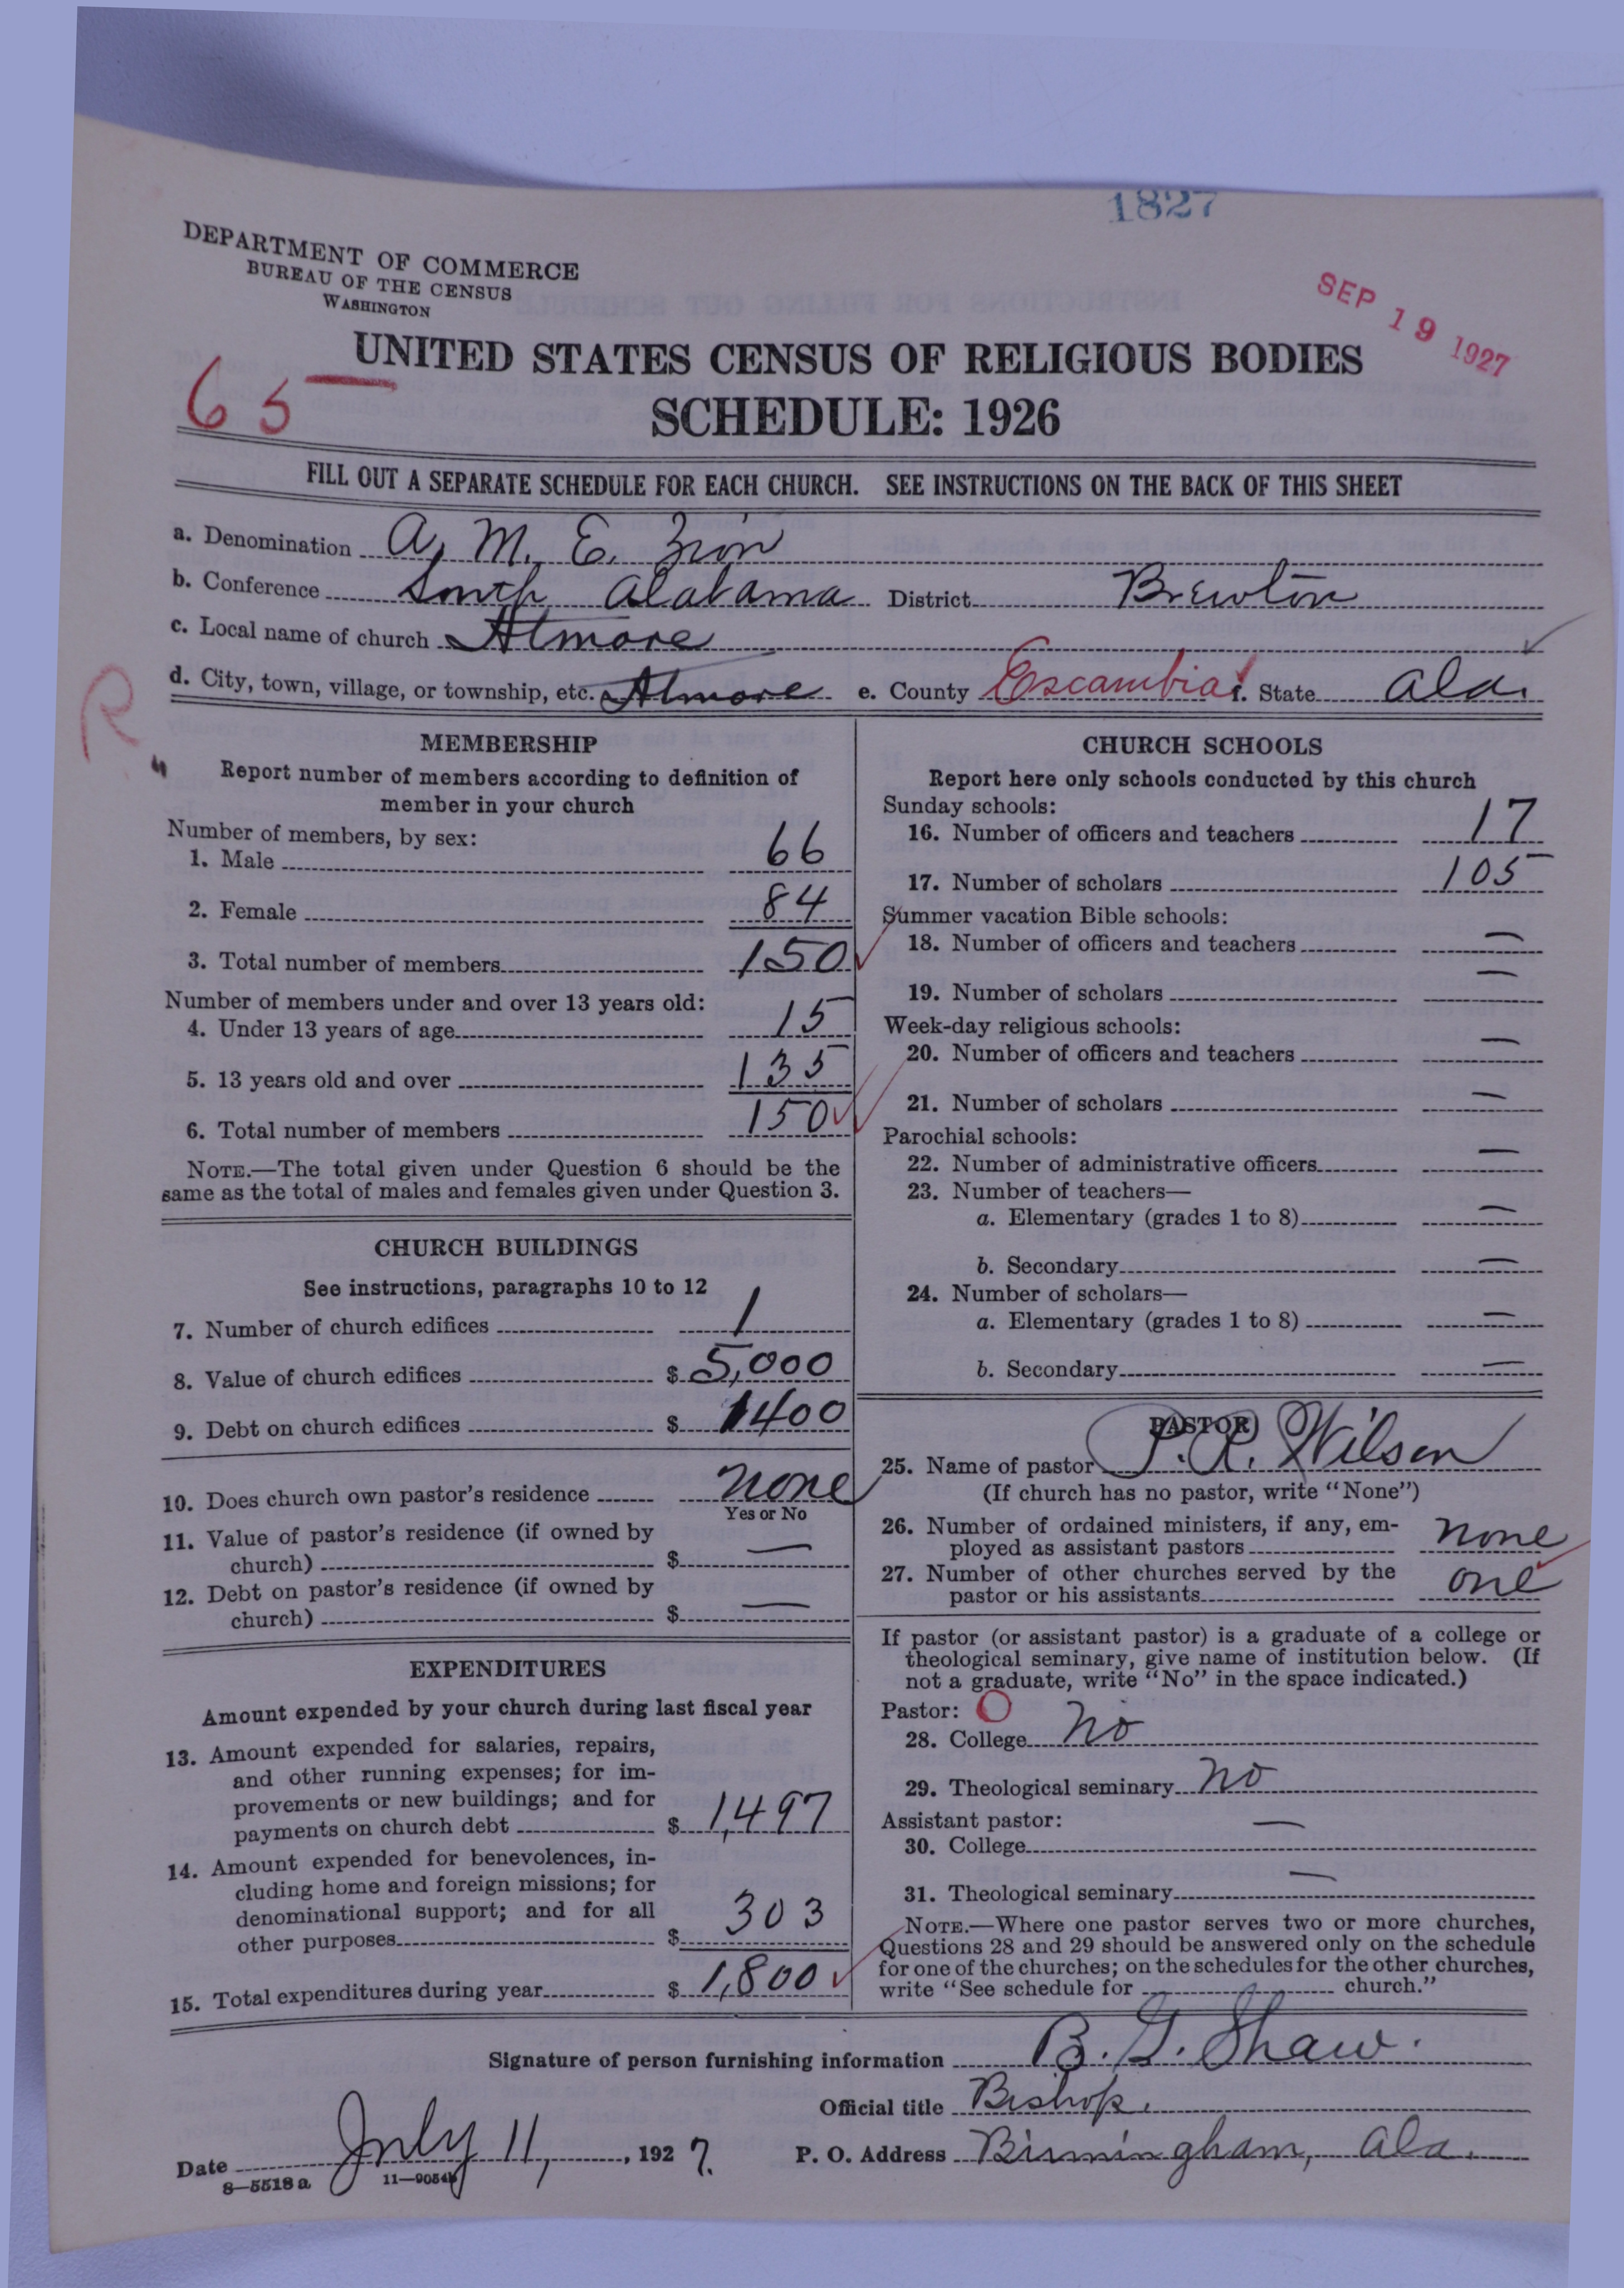 1827
DEPARTMENT OF COMMERCE
BUREAU OF THE CENSUS
WASHINGTON
SEP 19 1927
UNITED STATES CENSUS OF RELIGIOUS BODIES
65
SCHEDULE: 1926
FILL OUT A SEPARATE SCHEDULE FOR EACH CHURCH. SEE INSTRUCTIONS ON THE BACK OF THIS SHEET
a. Denomination A. M. E. Zion
b. Conference South Alabama District Brewton
c. Local name of church Atmore
d. City, town, village, or township, etc. Atmore e. County Escambia f. State Ala.
R
MEMBERSHIP
Report number of members according to definition of
member in your church
Number of members, by sex:
1. Male 66
2. Female 84
3. Total number of members 150
Number of members under and over 13 years old:
4. Under 13 years of age 15
5. 13 years old and over 135
6. Total number of members 150
NOTE.—The total given under Question 6 should be the
same as the total of males and females given under Question 3.
CHURCH BUILDINGS
See instructions, paragraphs 10 to 12
7. Number of church edifices 1
8. Value of church edifices $ 5,000
9. Debt on church edifices $ 1400
10. Does church own pastor's residence none
Yes or No
11. Value of pastor's residence (if owned by
church) $ —
12. Debt on pastor's residence (if owned by
church) $ —
EXPENDITURES
Amount expended by your church during last fiscal year
13. Amount expended for salaries, repairs,
and other running expenses; for im-
provements or new buildings; and for
payments on church debt $ 1,497
14. Amount expended for benevolences, in-
cluding home and foreign missions; for
denominational support; and for all
other purposes $ 303
15. Total expenditures during year $ 1,800
CHURCH SCHOOLS
Report here only schools conducted by this church
Sunday schools:
16. Number of officers and teachers 17
17. Number of scholars 105
Summer vacation Bible schools:
18. Number of officers and teachers —
19. Number of scholars —
Week-day religious schools:
20. Number of officers and teachers —
21. Number of scholars —
Parochial schools:
22. Number of administrative officers —
23. Number of teachers—
a. Elementary (grades 1 to 8) —
b. Secondary —
24. Number of scholars—
a. Elementary (grades 1 to 8) —
b. Secondary —
PASTOR
25. Name of pastor P. R. Wilson
(If church has no pastor, write "None")
26. Number of ordained ministers, if any, em-
ployed as assistant pastors none
27. Number of other churches served by the
pastor or his assistants one
If pastor (or assistant pastor) is a graduate of a college or
theological seminary, give name of institution below. (If
not a graduate, write "No" in the space indicated.)
Pastor: O
28. College No
29. Theological seminary No
Assistant pastor:
30. College —
31. Theological seminary —
NOTE.—Where one pastor serves two or more churches,
Questions 28 and 29 should be answered only on the schedule
for one of the churches; on the schedules for the other churches,
write "See schedule for church."
Signature of person furnishing information B. G. Shaw.
Official title Bishop.
Date July 11, 1927. P. O. Address Birmingham, Ala.
8—5518a 11—9054b